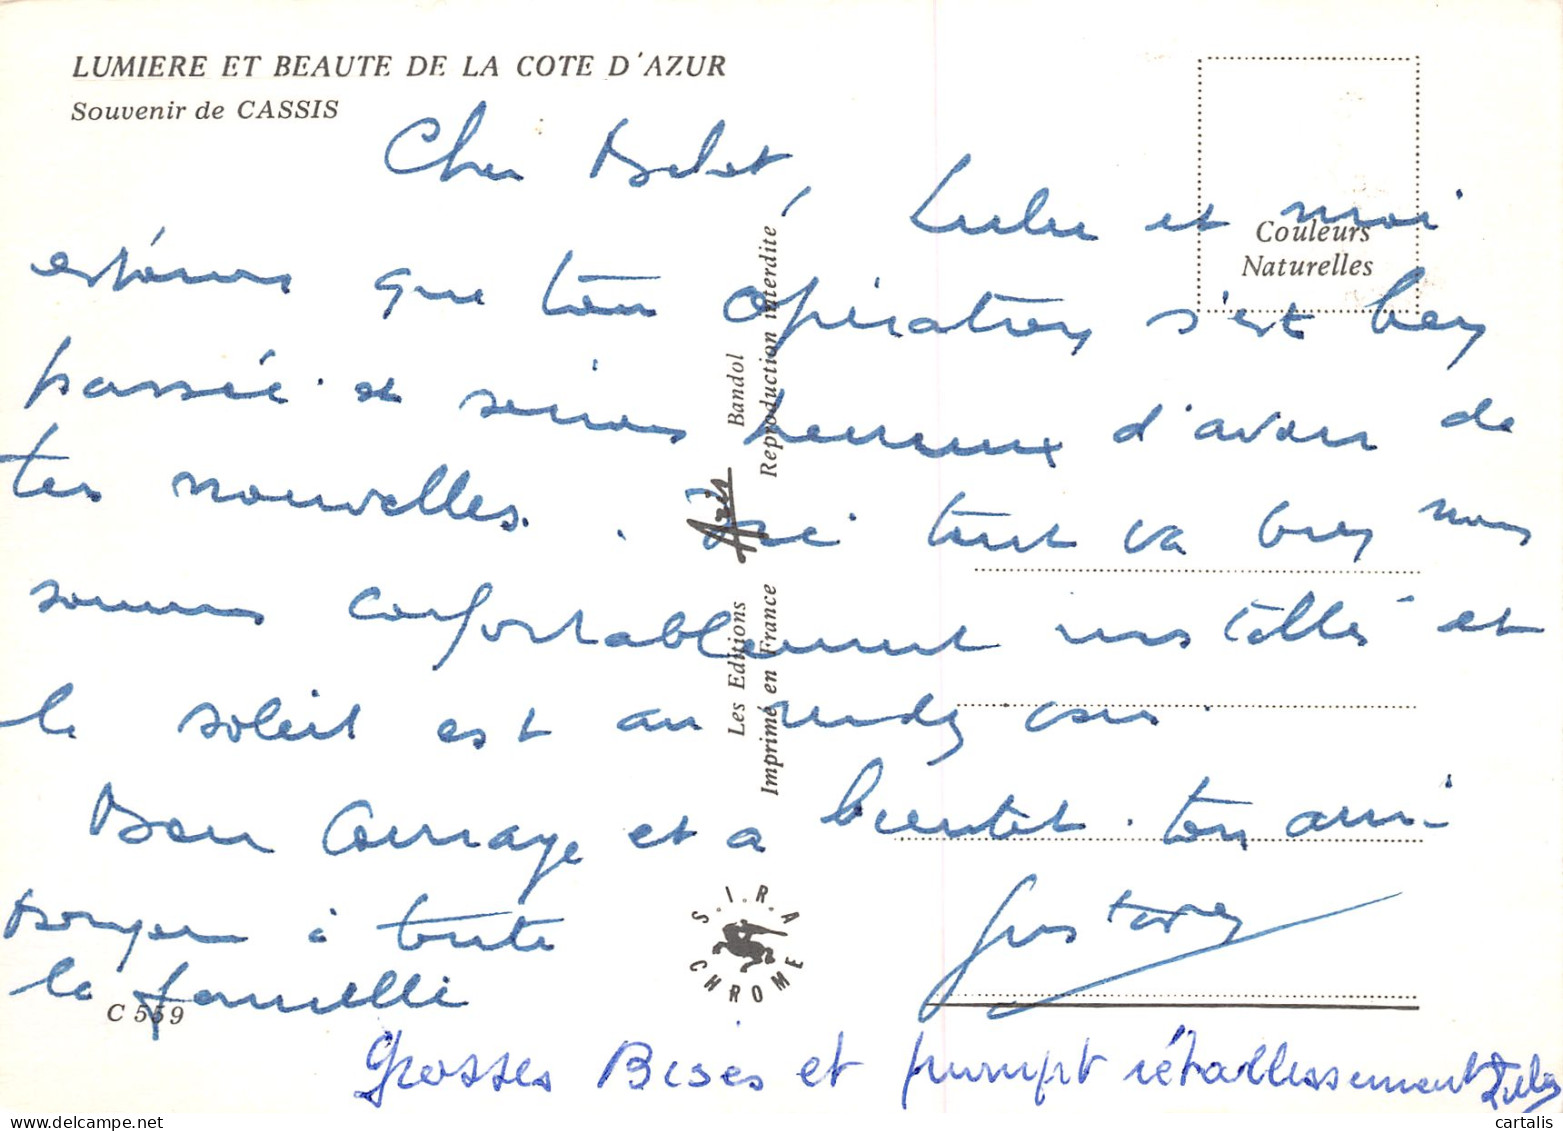 LUMIERE ET BEAUTE DE LA COTE D'AZUR
Souvenir de CASSIS
Couleurs
Naturelles
Cher Bebet,
Lulu et moi
espérons que ton opération s'est bien
passée. et serions heureux d'avoir de
tes nouvelles. Ici tout va bien nous
sommes confortablement installés et
le soleil est au rendez vous.
Bon Courage et a bientot. ton ami
Gustave
Bonjour à toute
la famille
Grosses Bises et prompt rétablissement Lulu
Les Editions Aris Bandol
Imprimé en France Reproduction interdite
S.I.R.A
CHROME
C 559
cartalis